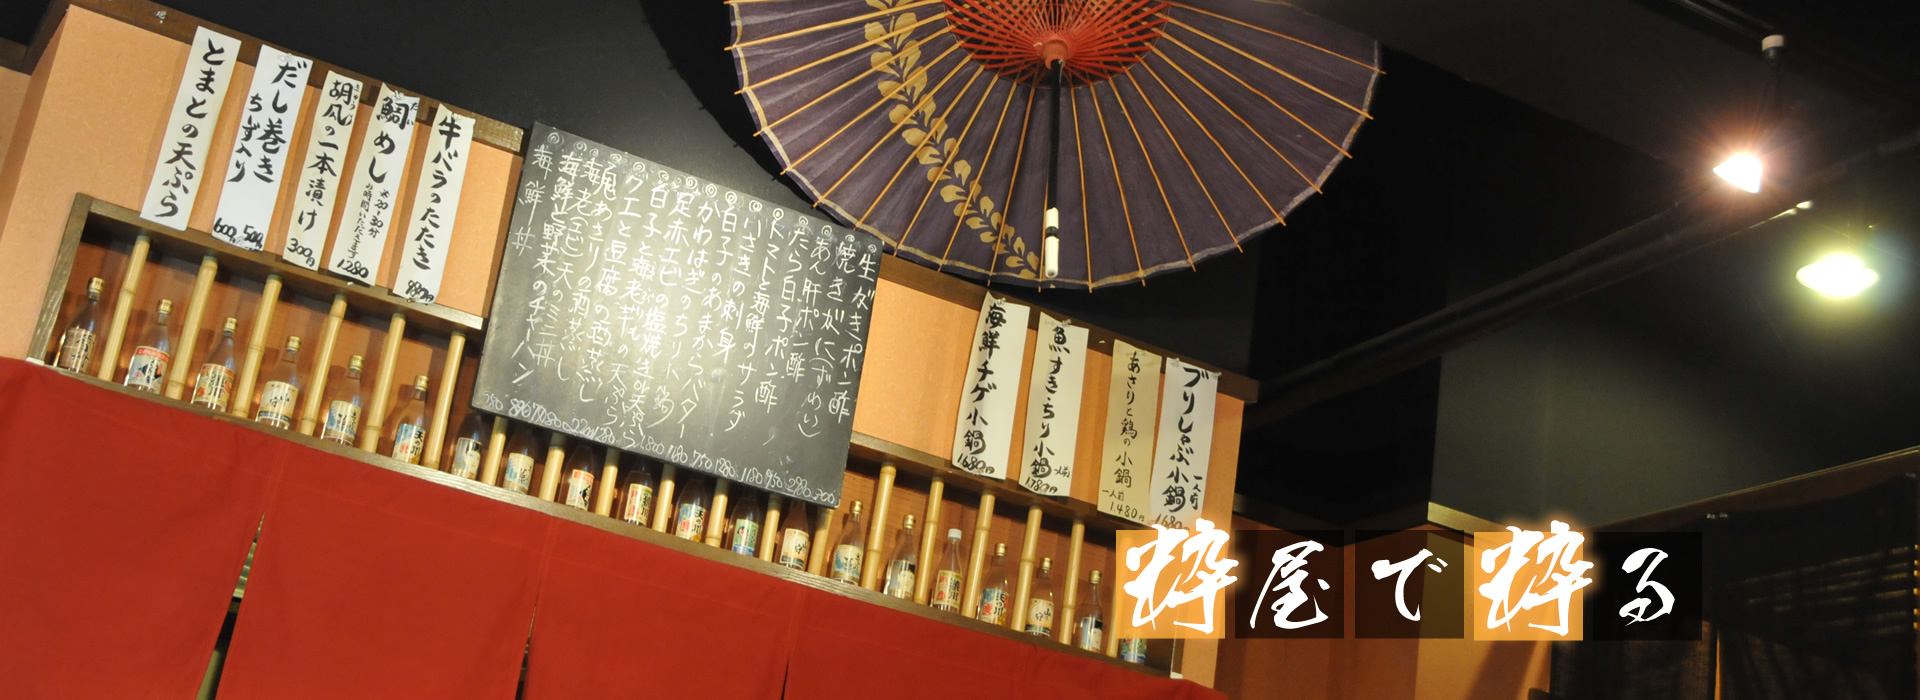 とまとの天ぷら
だし巻き
ちーず入り
600円 500円
胡瓜の一本漬け
300円
鯛めし
※20〜30分
お時間いただきます
1,280
牛バラのたたき
880円
生がきポン酢
焼きがに(ずわい)
あん肝ポン酢
たら白子ポン酢
トマトと海鮮のサラダ
いさきの刺身
白子のあまからバター
かわはぎのちり小鍋
足赤エビの塩焼き
白子と海老芋の天ぷら
クエと豆腐の酒蒸し
鬼あさりの酒蒸し
海老天のミニ丼
海鮮と野菜のチャーハン
海鮮丼
海鮮チゲ小鍋
1,680円
魚すきちり小鍋
一人前
1,780円
あさりと鶏の小鍋
一人前
1,480円
ブリしゃぶ小鍋
一人前
1,680
粋屋で粋る